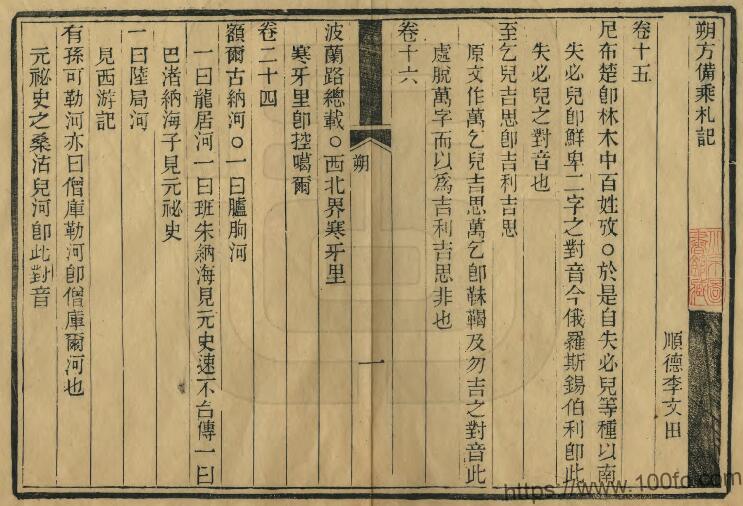 朔方備乘札記
順德李文田
卷十五
尼布楚卽林木中百姓攷○於是自失必兒等種以南
失必兒卽鮮卑二字之對音今俄羅斯錫伯利卽此
失必兒之對音也
至乞兒吉思卽吉利吉思
原文作萬乞兒吉思萬乞卽靺鞨及勿吉之對音此
處脫萬字而以爲吉利吉思非也
卷十六
朔
一
波蘭路總載○西北界寒牙里
寒牙里卽控噶爾
卷二十四
額爾古納河○一曰臚朐河
一曰龍居河一曰班朱納海見元史速不台傳一曰
巴渚納海子見元祕史
一曰陸局河
見西游記
有孫可勒河亦曰僧庫勒河卽僧庫爾河也
元祕史之桑沽兒河卽此對音
https://www.100fo.com